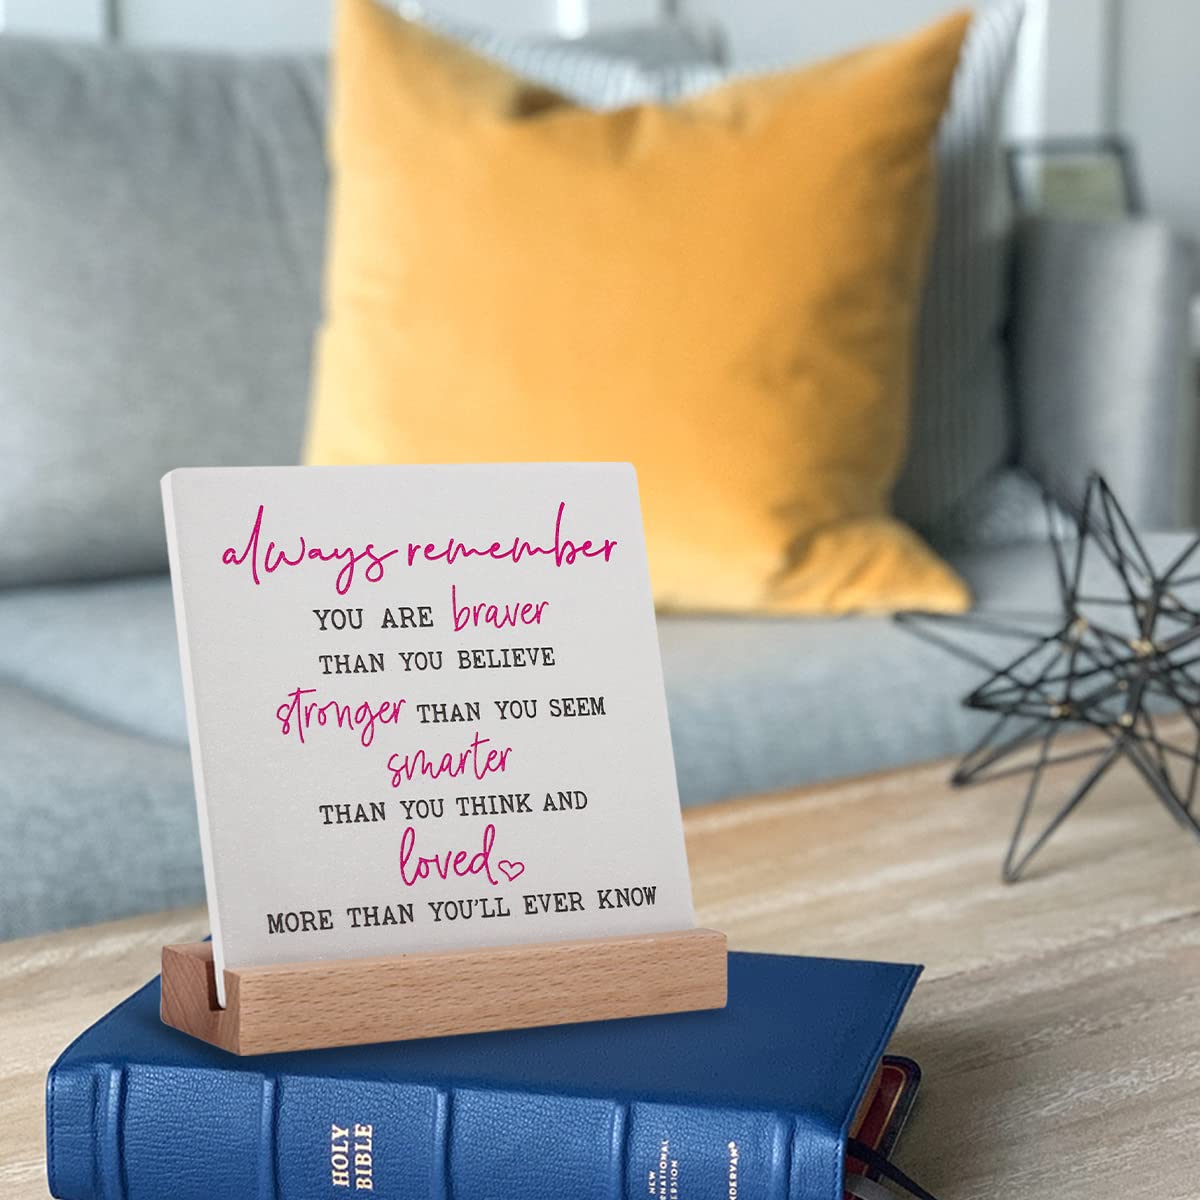 always remember
YOU ARE braver
THAN YOU BELIEVE
stronger THAN YOU SEEM
smarter
THAN YOU THINK AND
loved
MORE THAN YOU'LL EVER KNOW
HOLY
BIBLE
NEW
VERSION